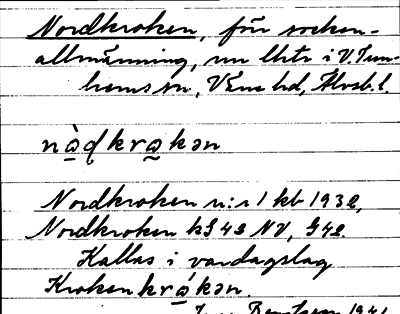 Nordkroken, förr socken-
allmänning, nu lht i V. Tun-
hems sn, Väne hd, Älvsb. l.
nä̀ḍkrɷkən
Nordkroken n:r 1 kb 1932,
Nordkroken kS 43 NV, S42.
Kallas i vardagslag
Kroken krɷ́kən.